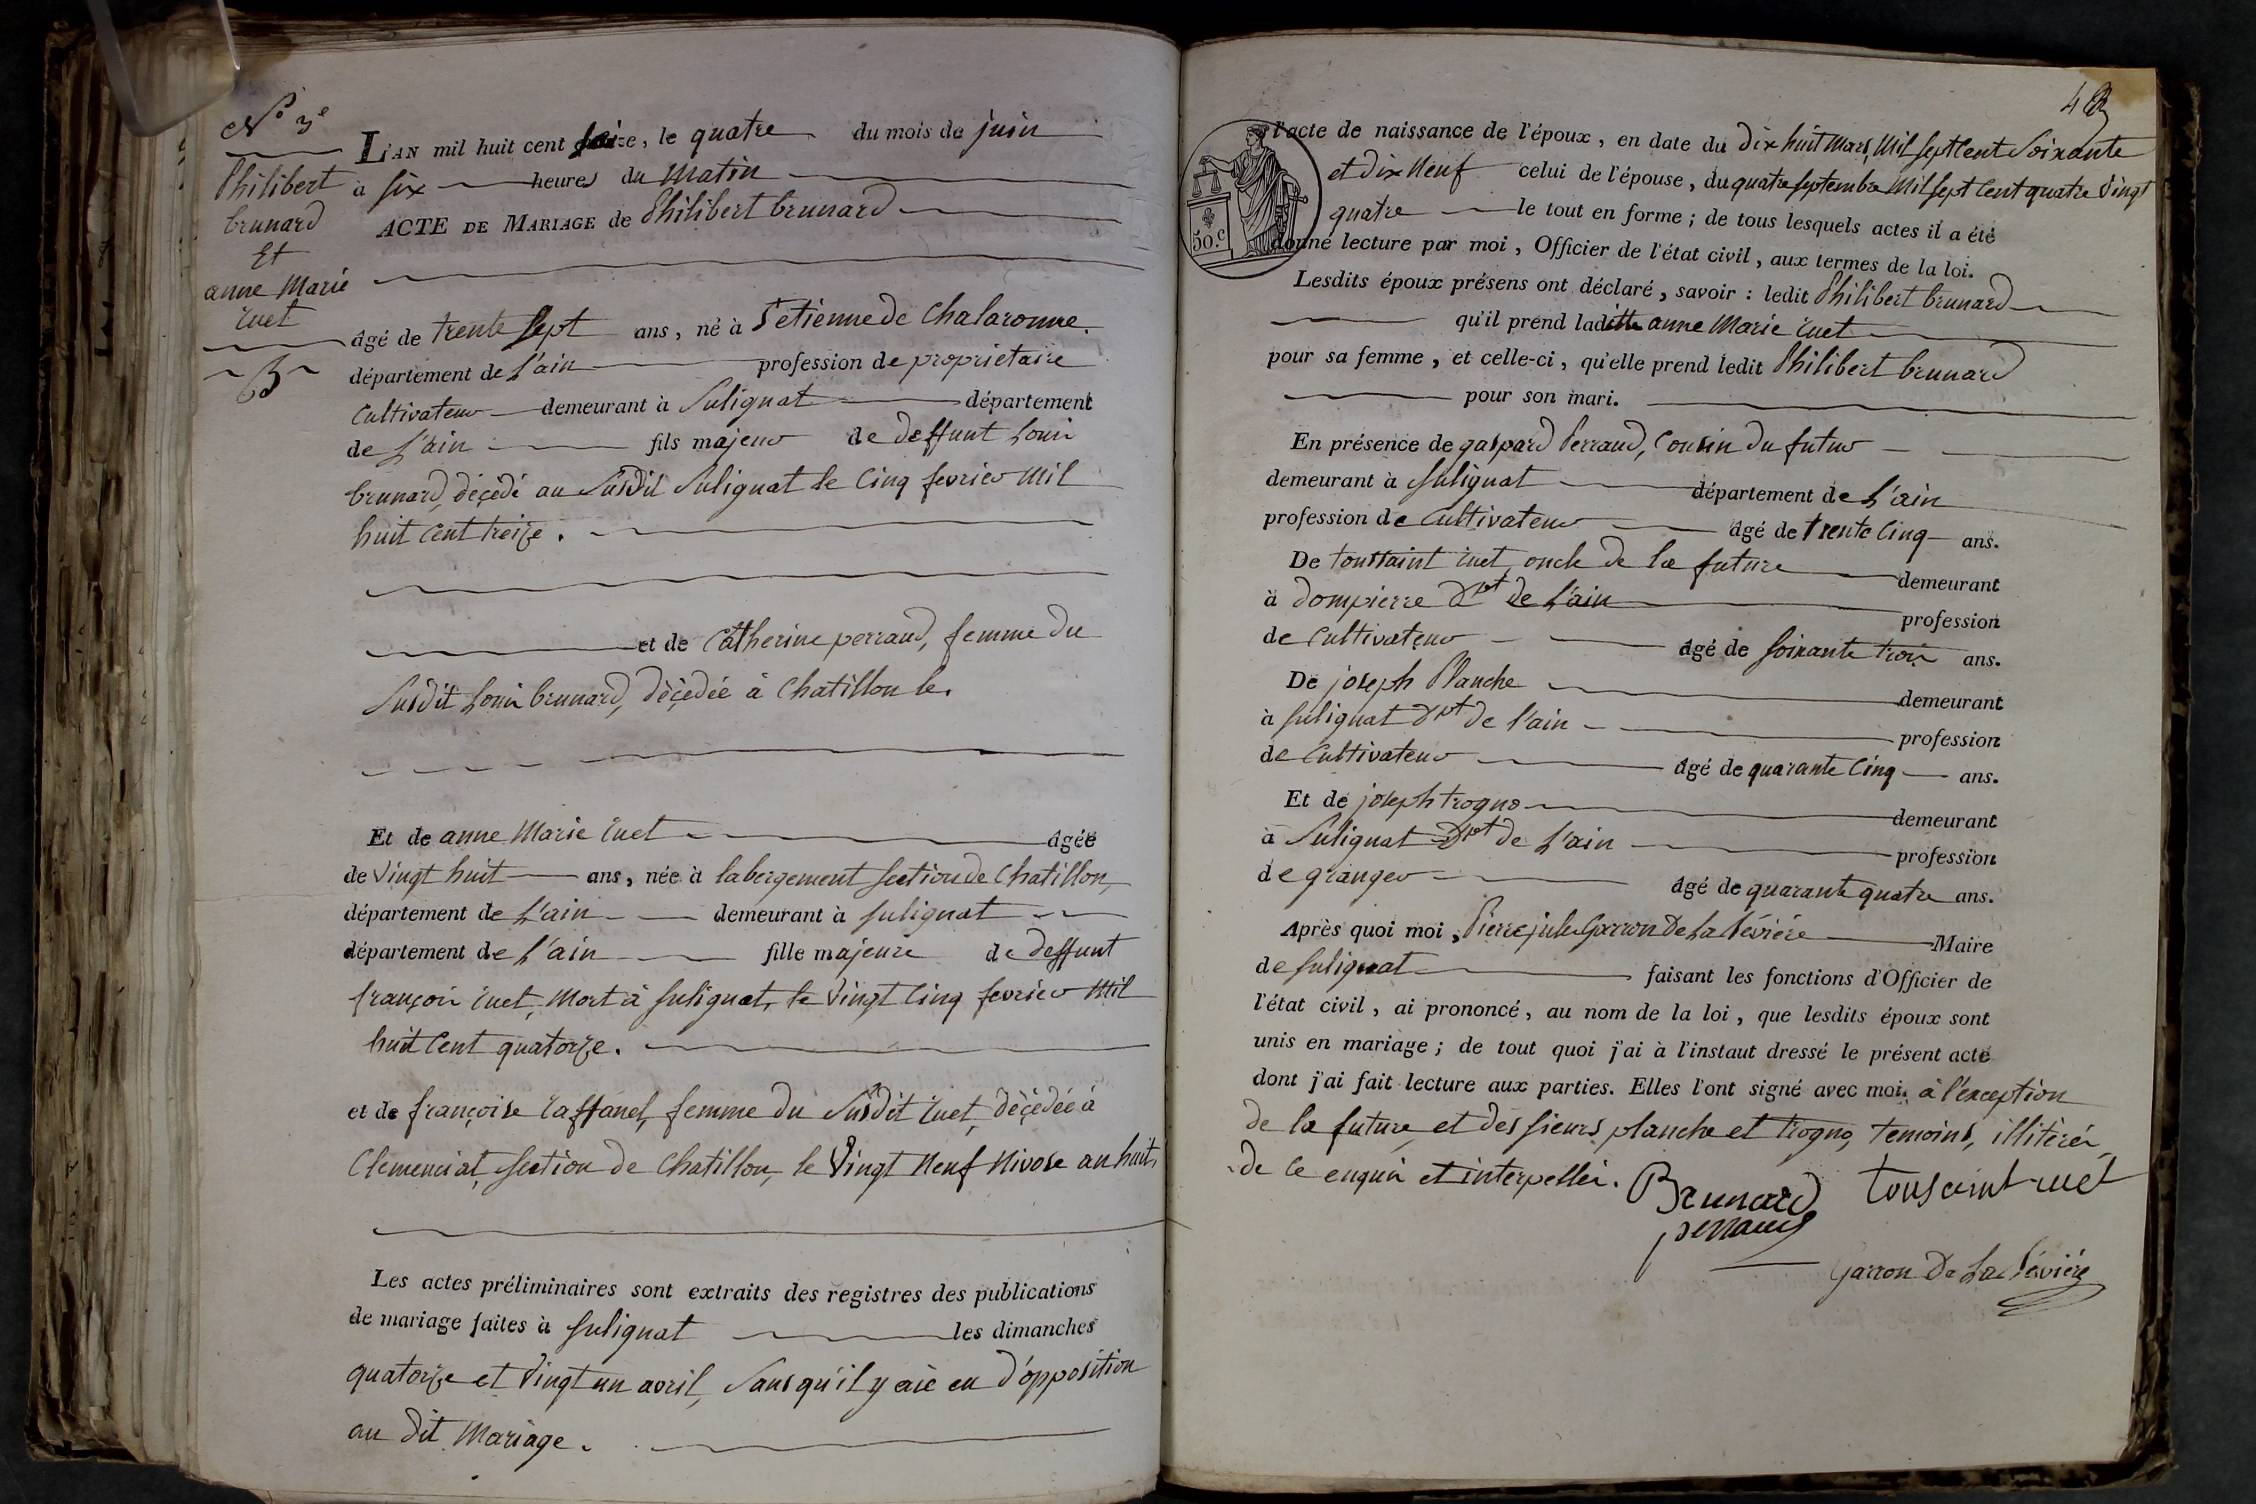 N° 3e
Philibert
brunard
Et
anne Marie
ruet
L'AN mil huit cent seize, le quatre du mois de juin
à six heures du matin
ACTE DE MARIAGE de Philibert brunard
âgé de trente sept ans, né à St etienne de Chalaronne.
département de L'ain profession de proprietaire
Cultivateur demeurant à Sulignat département
de L'ain fils majeur de deffunt Louis
brunard, décédé au Susdit Sulignat le Cinq fevrier Mil
huit Cent treize.
et de Catherine perraud, femme du
Susdit Louis brunard, décedée à Chatillon le.
Et de anne Marie ruet âgée
de Vingt huit ans, née à labergement Section de Chatillon,
département de L'ain demeurant à Sulignat
département de L'ain fille majeure de deffunt
françois ruet, Mort à Sulignat, le Vingt Cinq fevrier Mil
huit Cent quatorze.
et de françoise Caffanel, femme du Susdit ruet, décedée à
Clemenciat, Section de Chatillon, le Vingt Neuf Nivose an huit.
Les actes préliminaires sont extraits des registres des publications
de mariage faites à Sulignat les dimanches
quatorze et Vingt un avril, Sans qu'il y aie eu d'opposition
au dit Mariage.
50.c
l'acte de naissance de l'époux, en date du Dix huit Mars, Mil Sept Cent Soixante
et Dix Neuf celui de l'épouse, du quatre Septembre Mil Sept Cent quatre Vingt
quatre le tout en forme ; de tous lesquels actes il a été
donné lecture par moi, Officier de l'état civil, aux termes de la loi.
Lesdits époux présens ont déclaré, savoir : ledit Philibert brunard
qu'il prend laditte anne Marie ruet
pour sa femme, et celle-ci, qu'elle prend ledit Philibert brunard
pour son mari.
En présence de gaspard Perraud, Cousin du futur
demeurant à Sulignat département de L'ain
profession de Cultivateur âgé de trente Cinq ans.
De toussaint ruet, oncle de la future demeurant
à dompierre Dpt de L'ain profession
de Cultivateur âgé de Soixante trois ans.
De joseph Planche demeurant
à Sulignat Dpt de l'ain profession
de Cultivateur âgé de quarante Cinq ans.
Et de joseph trogno demeurant
à Sulignat Dpt de L'ain profession
de granger âgé de quarante quatre ans.
Après quoi moi, Pierre jule Garron De La Bévière Maire
de Sulignat faisant les fonctions d'Officier de
l'état civil, ai prononcé, au nom de la loi, que lesdits époux sont
unis en mariage ; de tout quoi j'ai à l'instaut dressé le présent acte
dont j'ai fait lecture aux parties. Elles l'ont signé avec moi. à l'exception
de la future et des Sieurs planche et trogno, temoins, illitèrés,
de ce enquis et interpellés. Brunard tousaint ruet
perraud
Garron De La Bévière